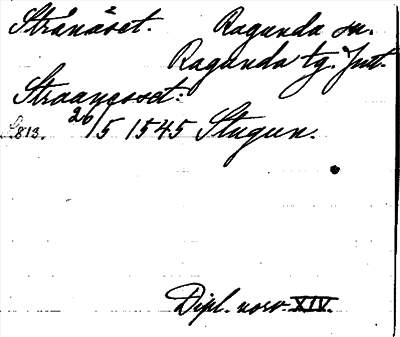 Strånäset. Ragunda sn.
Ragunda tg. Jmtl.
Straanesset:
S. 813. 26/5 1545 Stugun.
Dipl. norv. XIV.